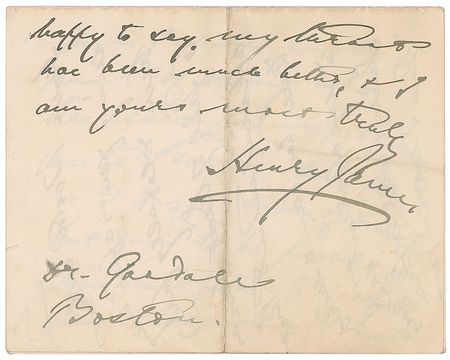 happy to say, my throat
has been much better, & I
am yours most truly
Henry James
Dr.
Boston.